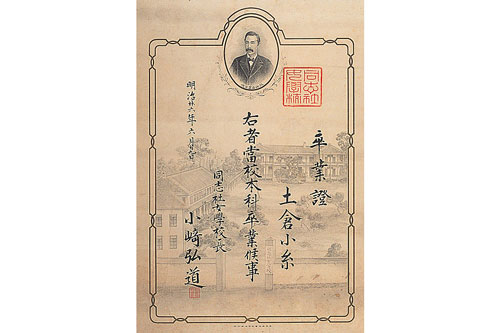 卒業證
土倉小糸
右者當校本科卒業候事
明治廿六年六月
同志社女學校長
小崎弘道
同志社
女學校